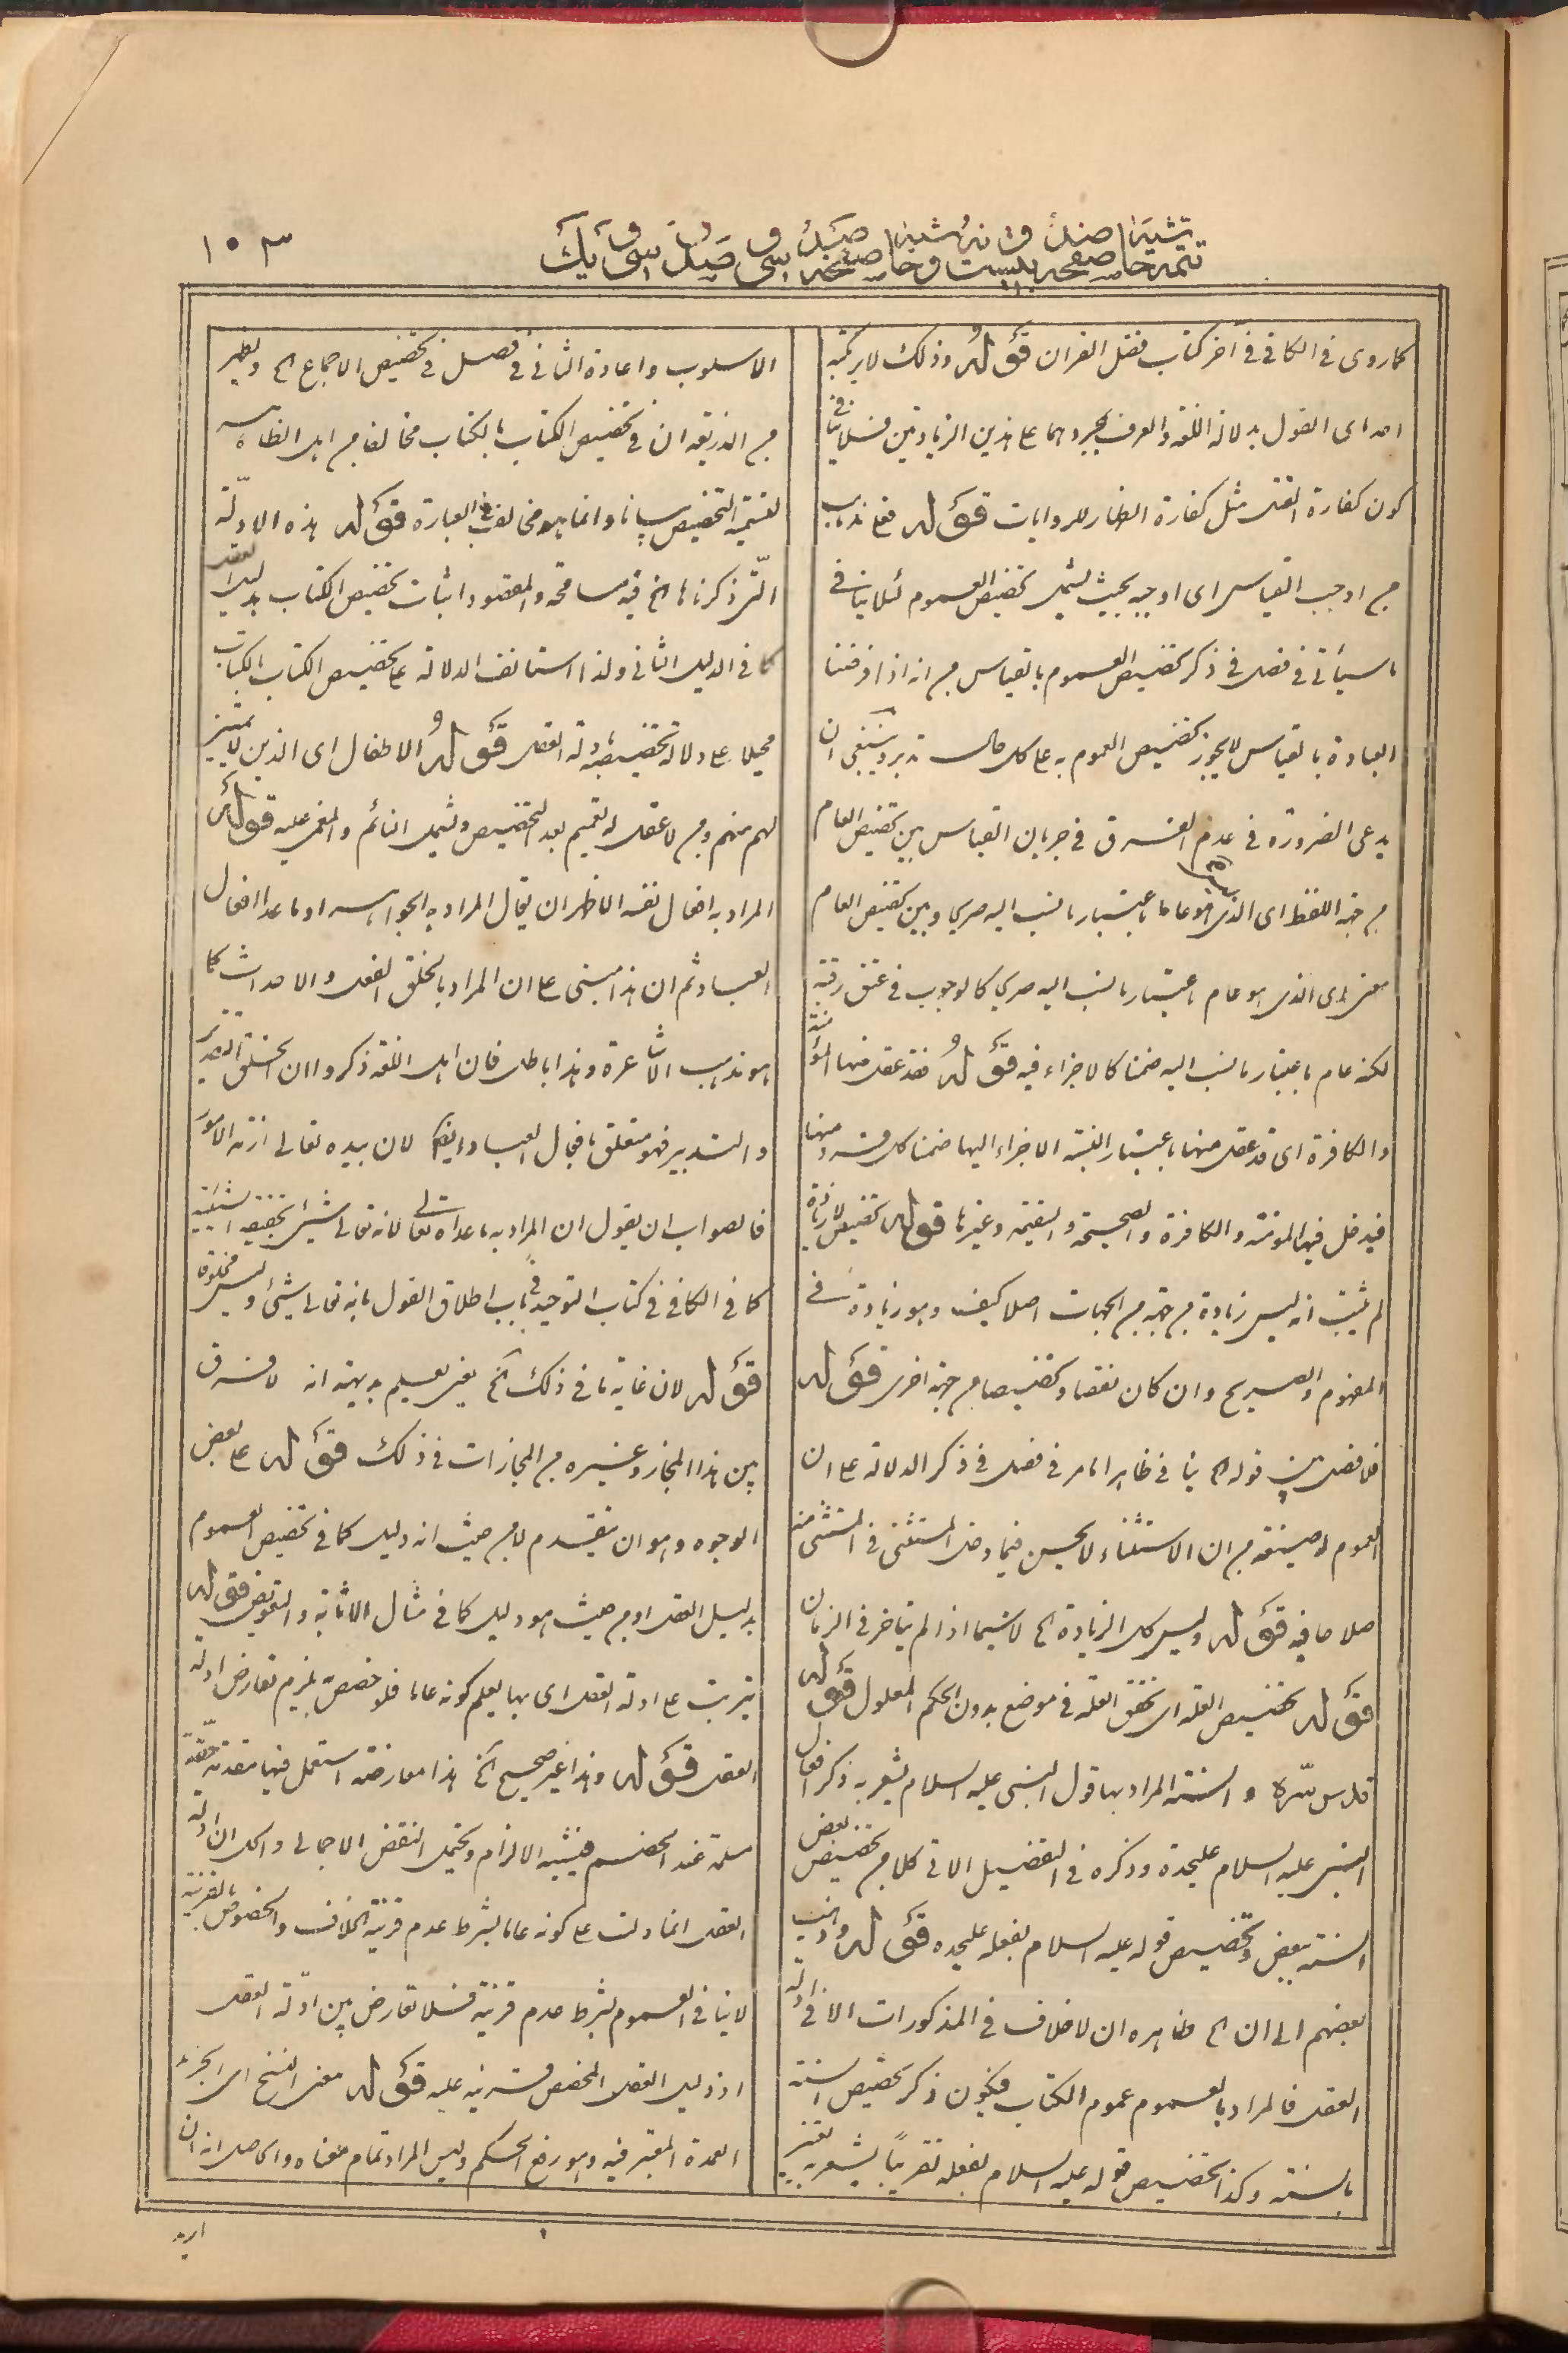 ١٠٣
تتمه حاشیه صفحه صد و بیست و حاشیه صفحه صد و سی و یک
کما روی فی الکافی فی آخر کتاب فضل القرآن قوله وذلک لا یرتکبه
احد ای القول بدلالة اللغة والعرف بمجردهما علی هذین الزیادتین فلا ینافی
کون کفارة القتل مثل کفارة الظهار للروایات قوله فعلی مذهب
من اوجب القیاس ای اوجبه بحیث یشمل تخصیص العموم لئلا ینافی
ما سیأتی فی فصل فی ذکر تخصیص العموم بالقیاس من انه اذا فرضنا
العبادة بالقیاس لا یجوز تخصیص العموم به علی کل حال تدبر وینبغی ان
یدعی الضرورة فی عدم الفرق فی جریان القیاس بین تخصیص العام
من جهة اللفظ ای الذی هو عام باعتبار ما نسب الیه صریحا وبین تخصیص العام
معنی ای الذی هو عام باعتبار ما نسب الیه صریحا کالوجوب فی عتق رقبة
لکنه عام باعتبار ما نسب الیه ضمنا کالاجزاء فیه قوله فقد عقل منها المؤمنة
والکافرة ای قد عقل منها باعتبار نسبة الاجزاء الیها ضمنا کل فرد منها
فیدخل فیها المؤمنة والکافرة والصحیحة والسقیمة وغیرها قوله تخصیص لا زیادة
لم یثبت انه لیس زیادة من جهة من الجهات اصلا کیف وهو زیادة فی
المفهوم والصریح وان کان نقصا وتخصیصا من جهة اخری قوله
فلا فصل بین قوله الخ ینافی ظاهرا ما مر فی فصل فی ذکر الدلالة علی ان
العموم له صیغة من ان الاستثناء لا یحسن فیما دخل المستثنی فی المستثنی منه
صلاحا فیه قوله ولیس کل الزیادة الخ لا سیما اذا لم یتأخر فی الزمان
قوله تخصیص العلة ای تحقق العلة فی موضع بدون الحکم المعلول قوله
قدس سره والسنة المراد بها قول النبی علیه السلام یشعر به ذکر افعال
النبی علیه السلام علیحدة وذکره فی التفصیل الآتی کلا من تخصیص بعض
السنة ببعض وتخصیص قوله علیه السلام بفعله علیحده قوله وذهب
بعضهم الی ان الخ ظاهره ان لا خلاف فی المذکورات الا فی ادلة
العقل فالمراد بالعموم عموم الکتاب فیکون ذکر تخصیص السنة
بالسنة وکذا تخصیص قوله علیه السلام بفعله تقریبا یشعر به تغییر
الاسلوب واعادة الثانی فی فصل فی تخصیص الاجماع الخ ویظهر
من الذریعة ان فی تخصیص الکتاب بالکتاب مخالفا من اهل الظاهر
لتسمیة التخصیص بیانا وانما هو مخالف فی العبارة قوله هذه الادلة
التی ذکرناها الخ فیه مسامحة والمقصود اثبات تخصیص الکتاب بدلیل العقل
کما فی الدلیل الثانی ولذا استأنف الدلالة علی تخصیص الکتاب بالکتاب
محیلا علی دلالة تخصیصه بادلة العقل قوله الاطفال ای الذین لا تمییز
لهم منهم ومن لا عقل له تعمیم بعد التخصیص ویشمل النائم والمغمی علیه قوله
المراد به افعال نفسه الاظهر ان یقال المراد به الجواهر او ما عدا افعال
العباد ثم ان هذا مبنی علی ان المراد بالخلق الفعل والاحداث کما
هو مذهب الاشاعرة وهذا باطل فان اهل اللغة ذکروا ان الخلق التقدیر
والتدبیر فهو متعلق بافعال العباد ایضا لان بیده تعالی ازمة الامور
فالصواب ان یقول ان المراد به ما عداه تعالی لانه تعالی شیء بحقیقة الشیئیة
کما فی الکافی فی کتاب التوحید فی باب اطلاق القول بانه تعالی شیء ولیس مخلوقا
قوله لان غایة ما فی ذلک الخ یعنی نعلم بدیهة انه لا فرق
بین هذا المجاز وغیره من المجازات فی ذلک قوله علی بعض
الوجوه وهو ان یتقدم لا من حیث انه دلیل کما فی تخصیص العموم
بدلیل العقل او من حیث هو دلیل کما فی مثال الاثابة والتعویض قوله
یترتب علی ادلة العقل ای بها یعلم کونه عاما فلو خصص یلزم تعارض ادلة
العقل قوله وهذا غیر صحیح الخ هذا معارضة استعمل فیها مقدمة حقة
مسلمة عند الخصم فیشبه الالزام ویحتمل النقض الاجمالی والحل ان ادلة
العقل انما دلت علی کونه عاما بشرط عدم قرینة الخلاف والخصوص بالقرینة
لا ینافی العموم بشرط عدم قرینة فلا تعارض بین ادلة العقل
اذ دلیل العقل المخصص قرینة علیه قوله معنی النسخ ای الجزء
العمدة المعتبر فیه وهو رفع الحکم ولیس المراد تمام معناه والحاصل انه ان
ارید